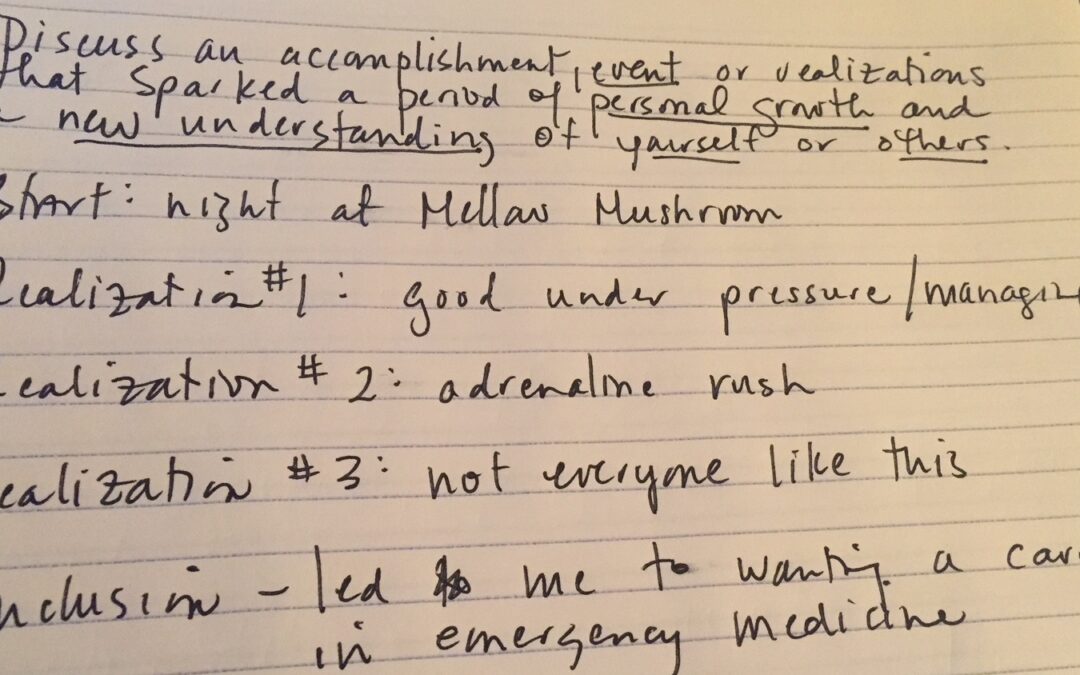 Discuss an accomplishment, event or realizations
that sparked a period of personal growth and
a new understanding of yourself or others.
Start: night at Mellow Mushroom
Realization #1: good under pressure/managin
Realization #2: adrenaline rush
ealization #3: not everyone like this
nclusion - led me to wanting a car
in emergency medicine